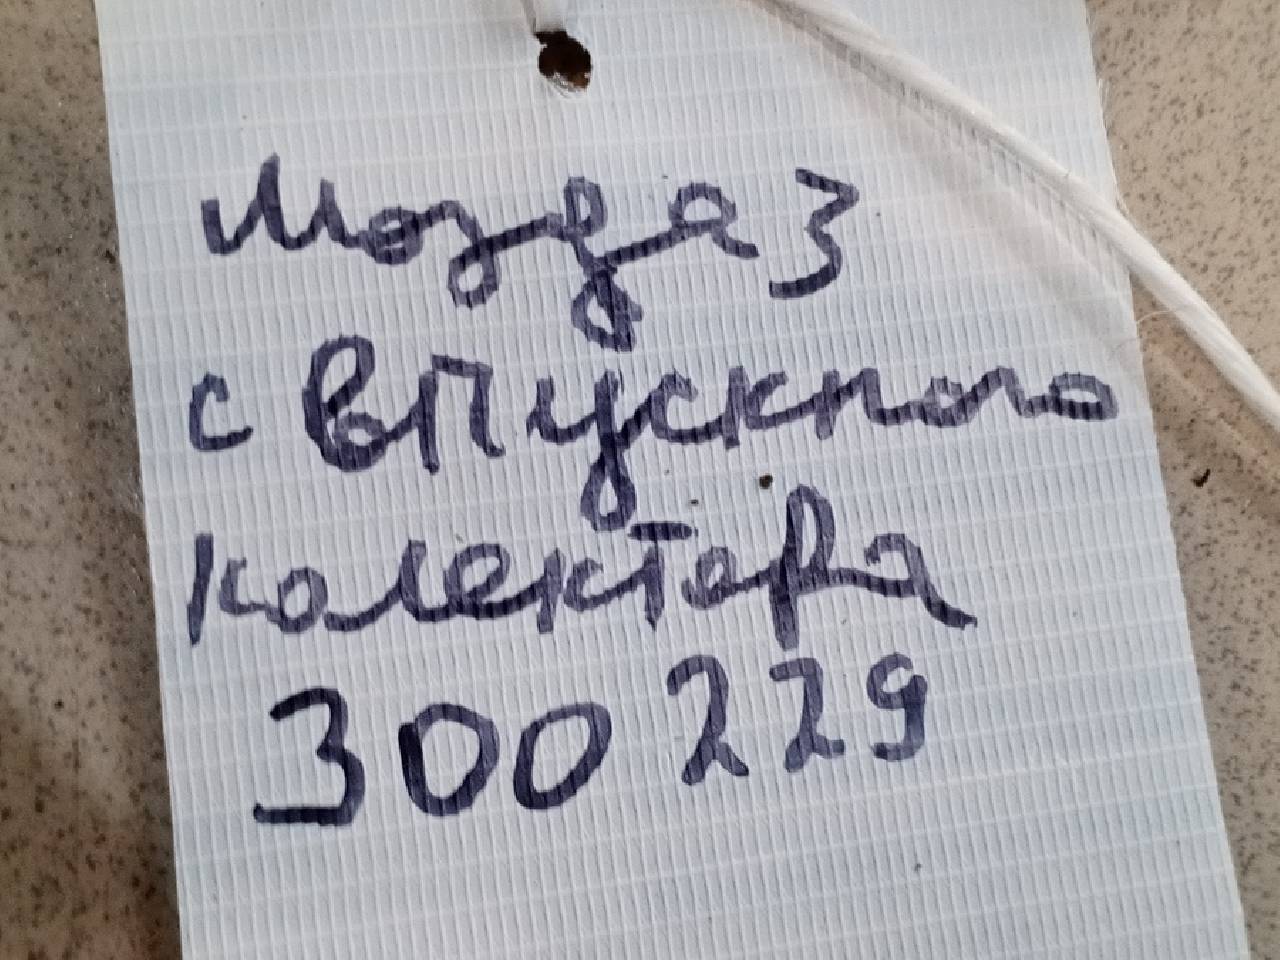 Мозда 3
с впускного
колектора
300 229